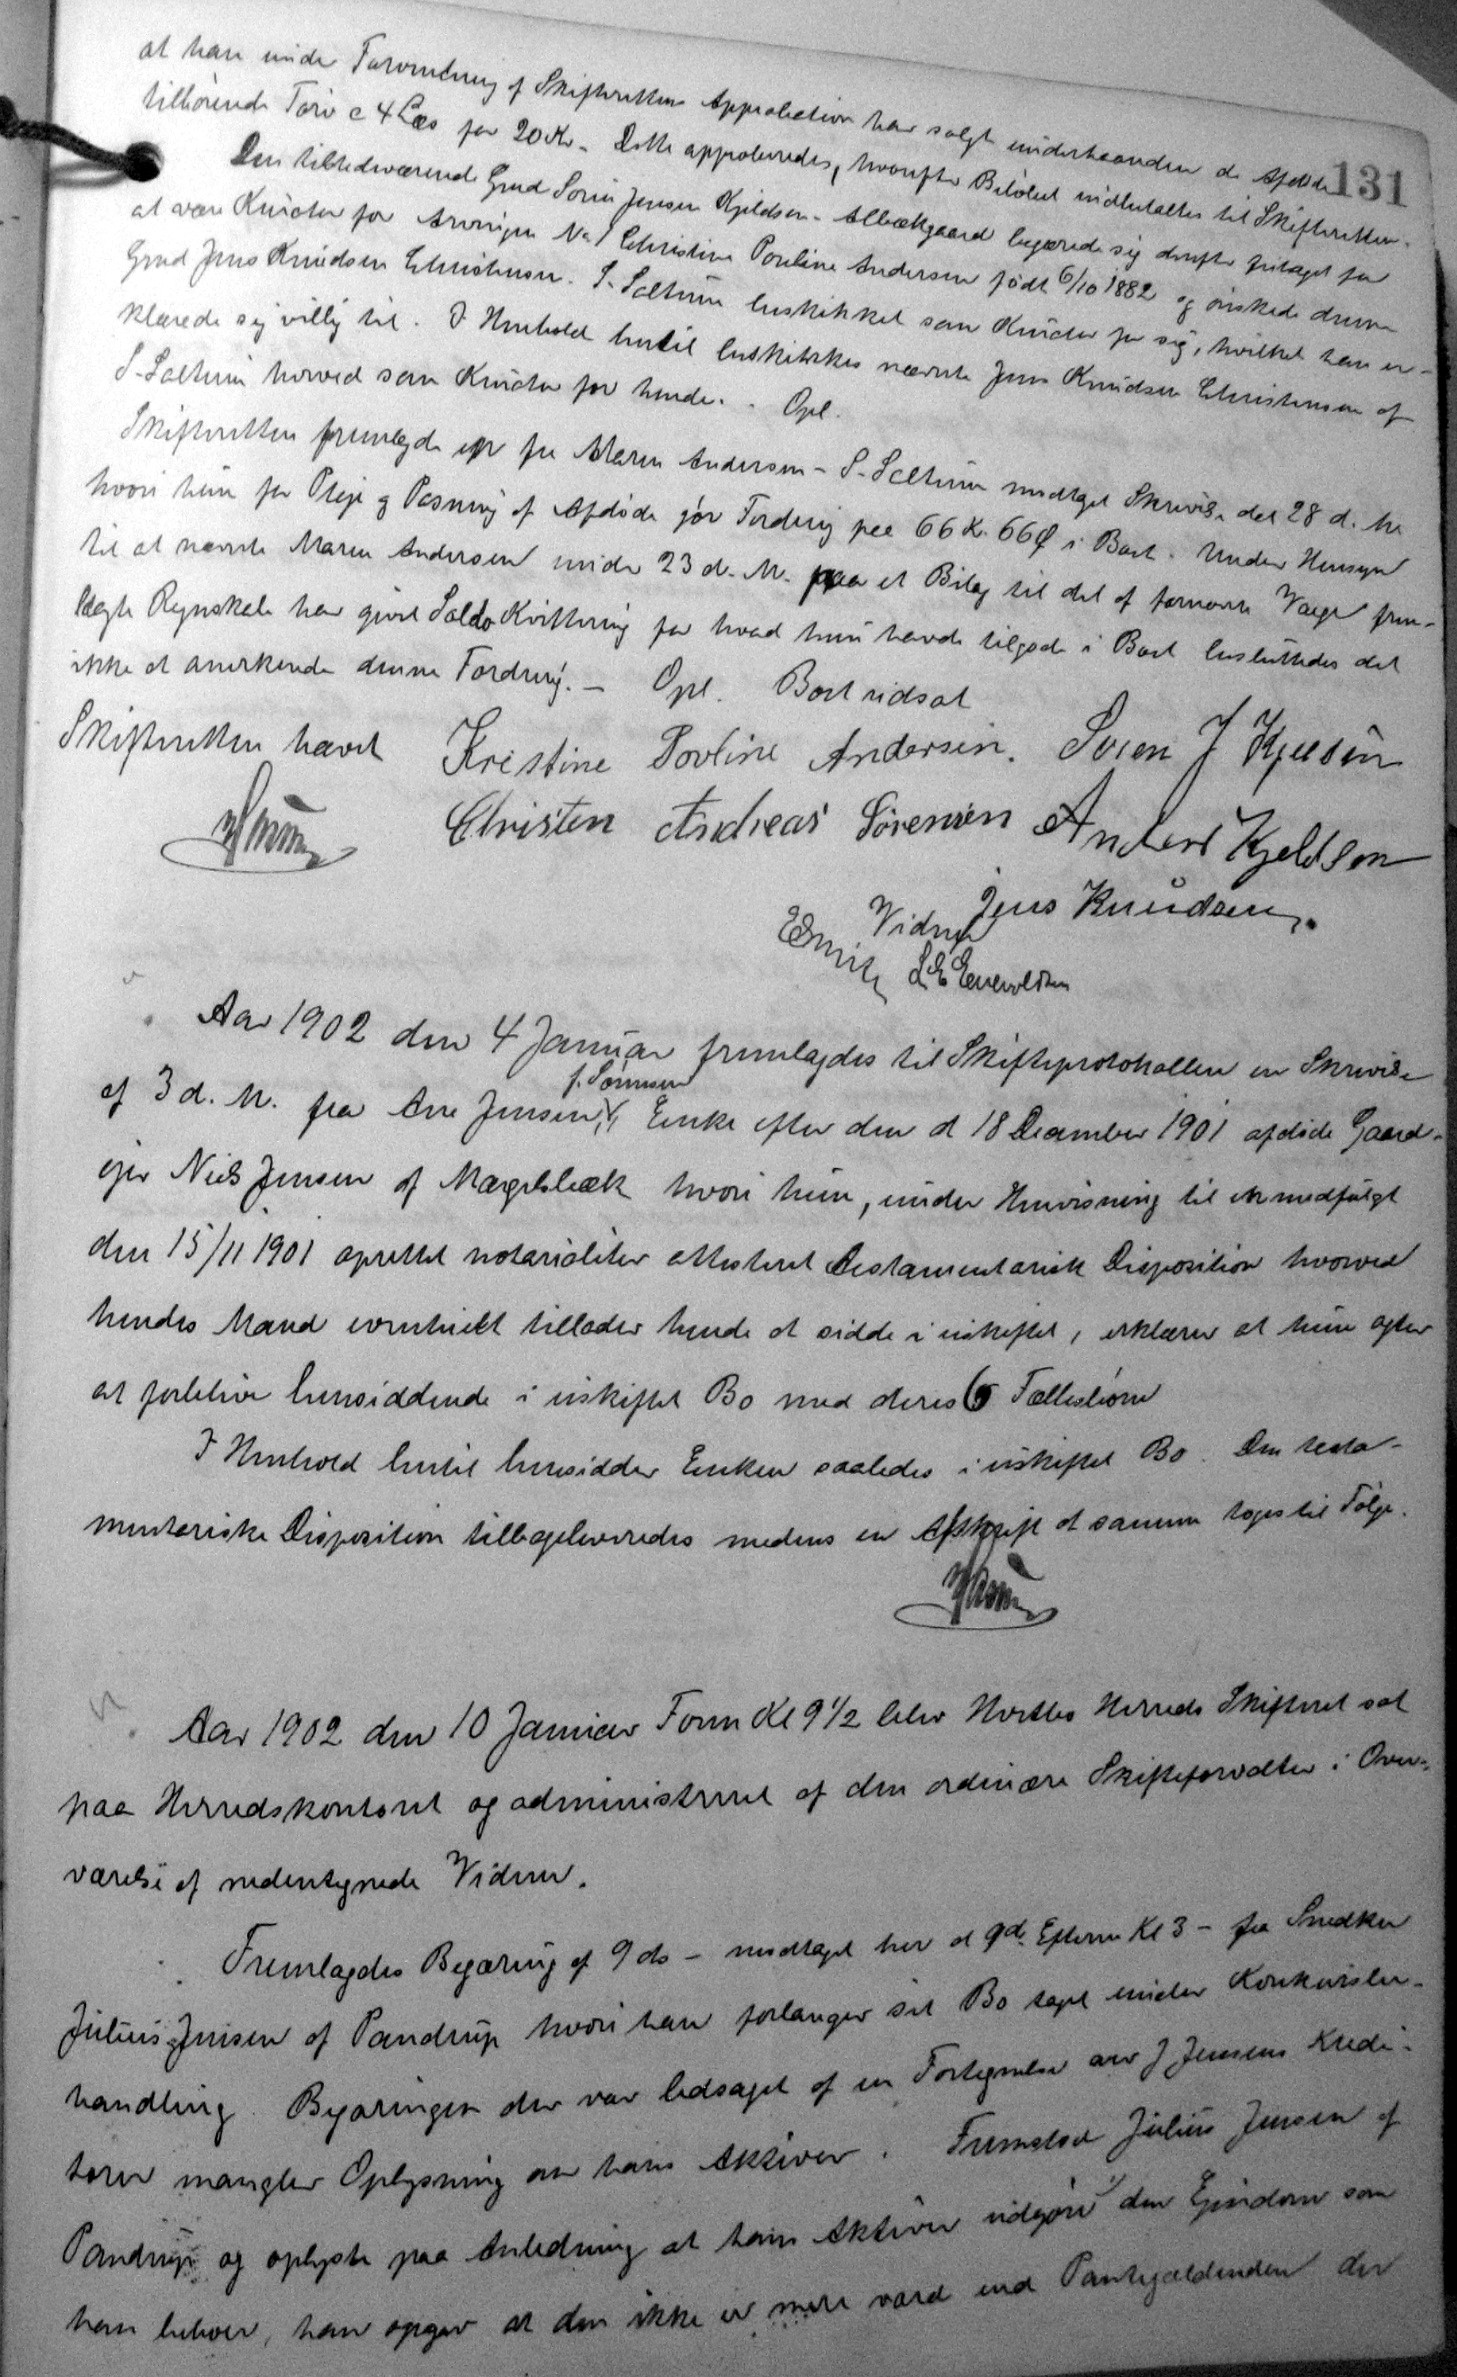 131
at han under Forventning af Skifterettens Approbation har solgt underhaanden de Afdøde
tilhørende Tørv c 4 Læs for 20 Kr. Dette approberedes, hvorefter Beløbet indbetaltes til Skifteretten.
Den tilstedeværende Grmd Søren Jensen Kjeldsen - Albækgaard begærede sig derefter fritaget for
at være Kurator for Arvingen No 1 Christine Pouline Andersen født 6/10 1882 og ønskede denne
Grmd Jens Knudsen Christensen. S. Saltum beskikket som Kurator for sig, hvilket han er-
klærede sig villig til. I Henhold hertil beskikkes nævnte Jens Knudsen Christensen af
S-Saltum herved som Kurator for hende. - Opl.
Skifteretten fremlagde en fra Maren Andersen - S-Saltum modtaget Skrivelse dat 28 d. M.
hvori hun for Pleje og Pasning af Afdøde gør Fordring paa 66 K. 66 Ø i Boet. Under Hensyn
til at nævnte Maren Andersen under 23 d. M. paa et Bilag til det af fornævnte Værge frem-
lagte Regnskab har givet Saldo Kvittering for hvad hun havde tilgode i Boet besluttedes det
ikke at anerkende denne Fordring. - Opl. Boet udsat
Skifteretten hævet Kristine Povline Andersen. Søren J Kjeldsen
Christen Andreas Sørensen Anders Kjeldsen
Jens Knudsen.
Vidner
L E Enevoldsen
Aar 1902 den 4 Januar fremlagdes til Skifteprotokollen en Skrivelse
f. Sørensen
af 3 d. M. fra Ane Jensen, Enke efter den d 18 December 1901 afdøde Gaard-
ejer Niels Jensen af Mægelsbæk hvori hun, under Henvisning til en medfulgt
den 15/11 1901 oprettet notarialiter attesteret testamentarisk Disposition hvorved
hendes Mand eventuelt tillader hende at sidde i uskiftet, erklærer at hun agter
at forblive hensiddende i uskiftet Bo med deres 6 Fællesbørn
I Henhold hertil hensidder Enken saaledes i uskiftet Bo. Den testa-
mentariske Disposition tilbageleveredes medens en Afskrift af samme toges til Følge.
Aar 1902 den 10 Januar Form Kl 9 1/2 blev Hvetbo Herreds Skifteret sat
paa Herredskontoret og administreret af den ordinære Skifteforvalter i Over-
værelse af nedentegnede Vidner.
Fremlagdes Begæring af 9 ds - modtaget her d 9 ds. Efterm Kl 3 - fra Snedker
Julius Jensen af Pandrup hvori han forlanger sit Bo taget under Konkursbe-
handling. Begæringen der var ledsaget af en Fortegnelse over J Jensens Kredi-
torer mangler Oplysning om hans Aktiver. Fremstod Julius Jensen af
Pandrup og oplyste paa Anledning at hans Aktiver udgøre 1/ den Ejendom som
han beboer, han opgav at den ikke er mere værd end Pantegældenden der